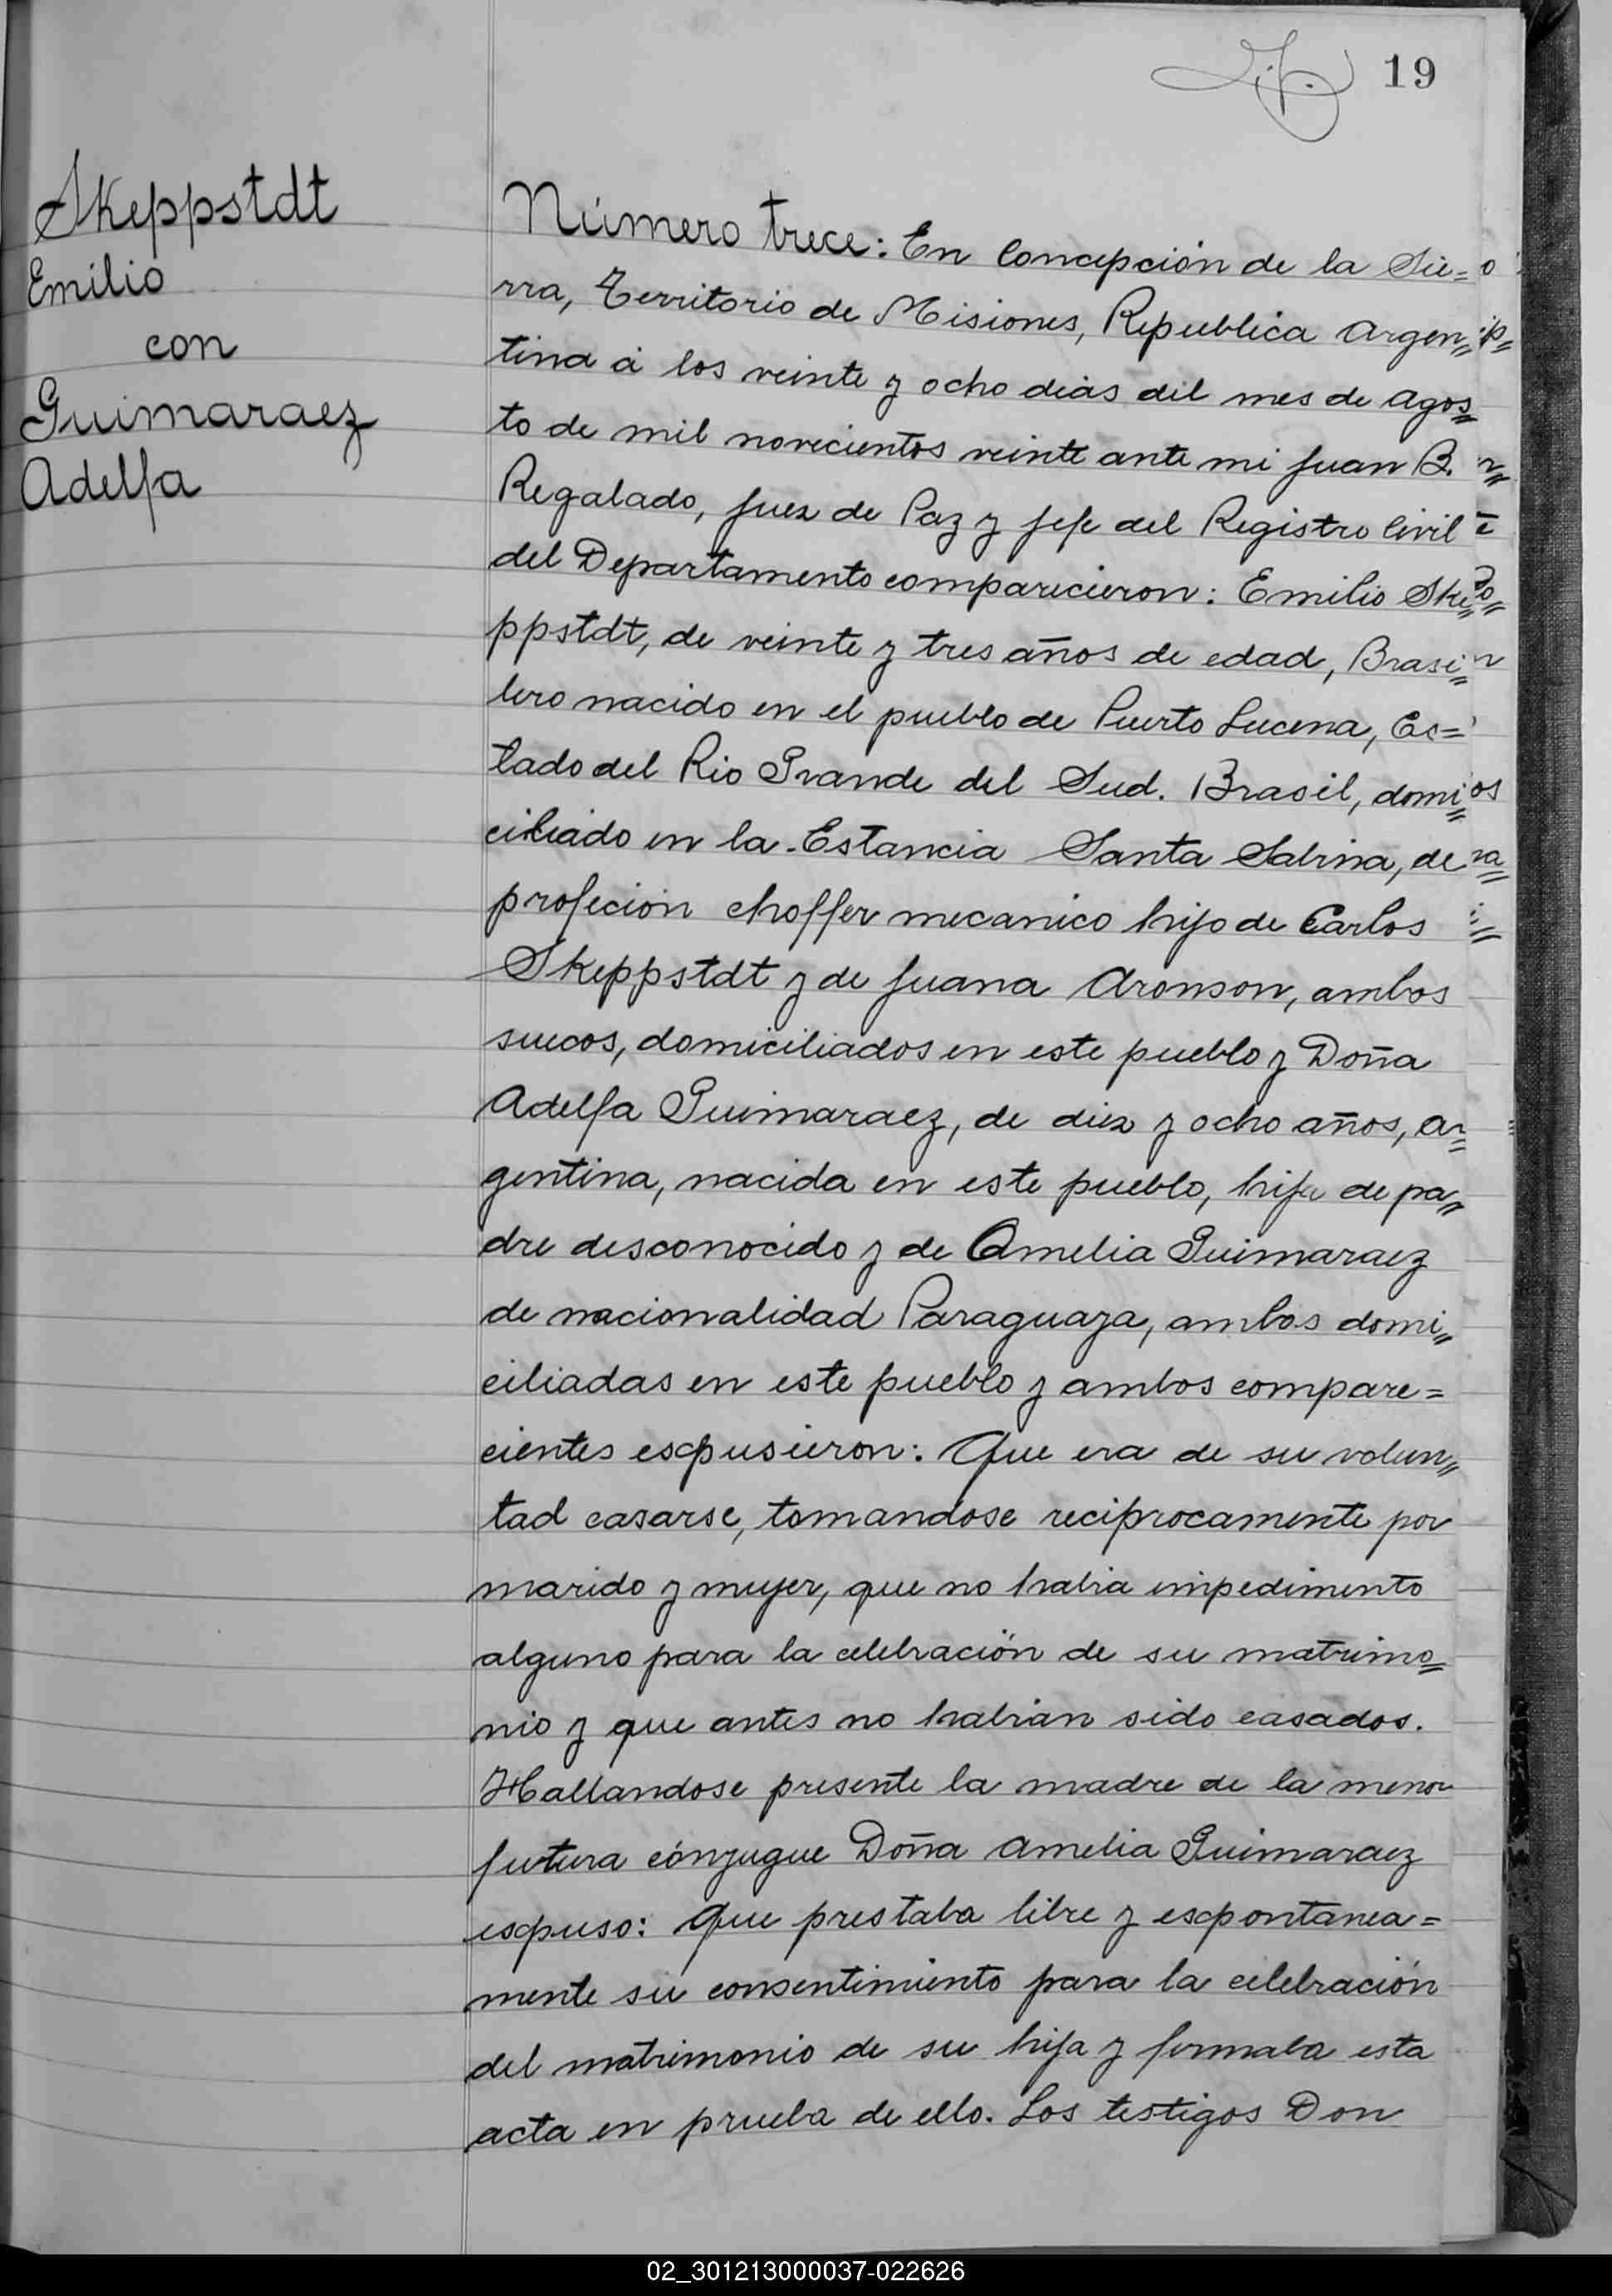 19
Skeppstdt
Emilio
con
Guimaraez
Adelfa
Número trece: En Concepción de la Sie=
rra, Territorio de Misiones, Republica Argen=
tina á los veinte y ocho dias del mes de Agos=
to de mil novecientos veinte ante mi Juan B.
Regalado, Juez de Paz y Jefe del Registro Civil
del Departamento comparecieron: Emilio Ske=
ppstdt, de veinte y tres años de edad, Brasi=
lero nacido en el pueblo de Puerto Lucena, Es=
tado del Rio Grande del Sud. Brasil, domi=
ciliado en la Estancia Santa Sabina, de
profeción choffer mecanico hijo de Carlos
Skeppstdt y de Juana Aronson, ambos
suecos, domiciliados en este pueblo y Doña
Adelfa Guimaraez, de diez y ocho años, Ar=
gentina, nacida en este pueblo, hija de pa=
dre desconocido y de Amelia Guimaraez
de nacionalidad Paraguaya, ambas domi=
ciliadas en este pueblo y ambos compare=
cientes expusieron: Que era de su volun=
tad casarse, tomandose reciprocamente por
marido y mujer, que no habia impedimento
alguno para la celebración de su matrimo=
nio y que antes no habian sido casados.
Hallandose presente la madre de la menor
futura cónyugue Doña Amelia Guimaraez
expuso: Que prestaba libre y expontanea=
mente su consentimiento para la celebración
del matrimonio de su hija y firmaba esta
acta en prueba de ello. Los testigos Don
02_301213000037-022626